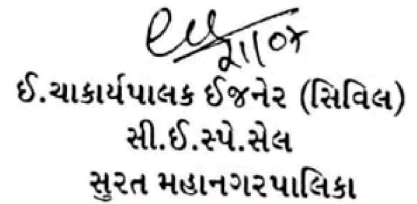 ૨૧/૦૪
ઈ.ચાકાર્યપાલક ઈજનેર (સિવિલ)
સી.ઈ.સ્પે.સેલ
સુરત મહાનગરપાલિકા